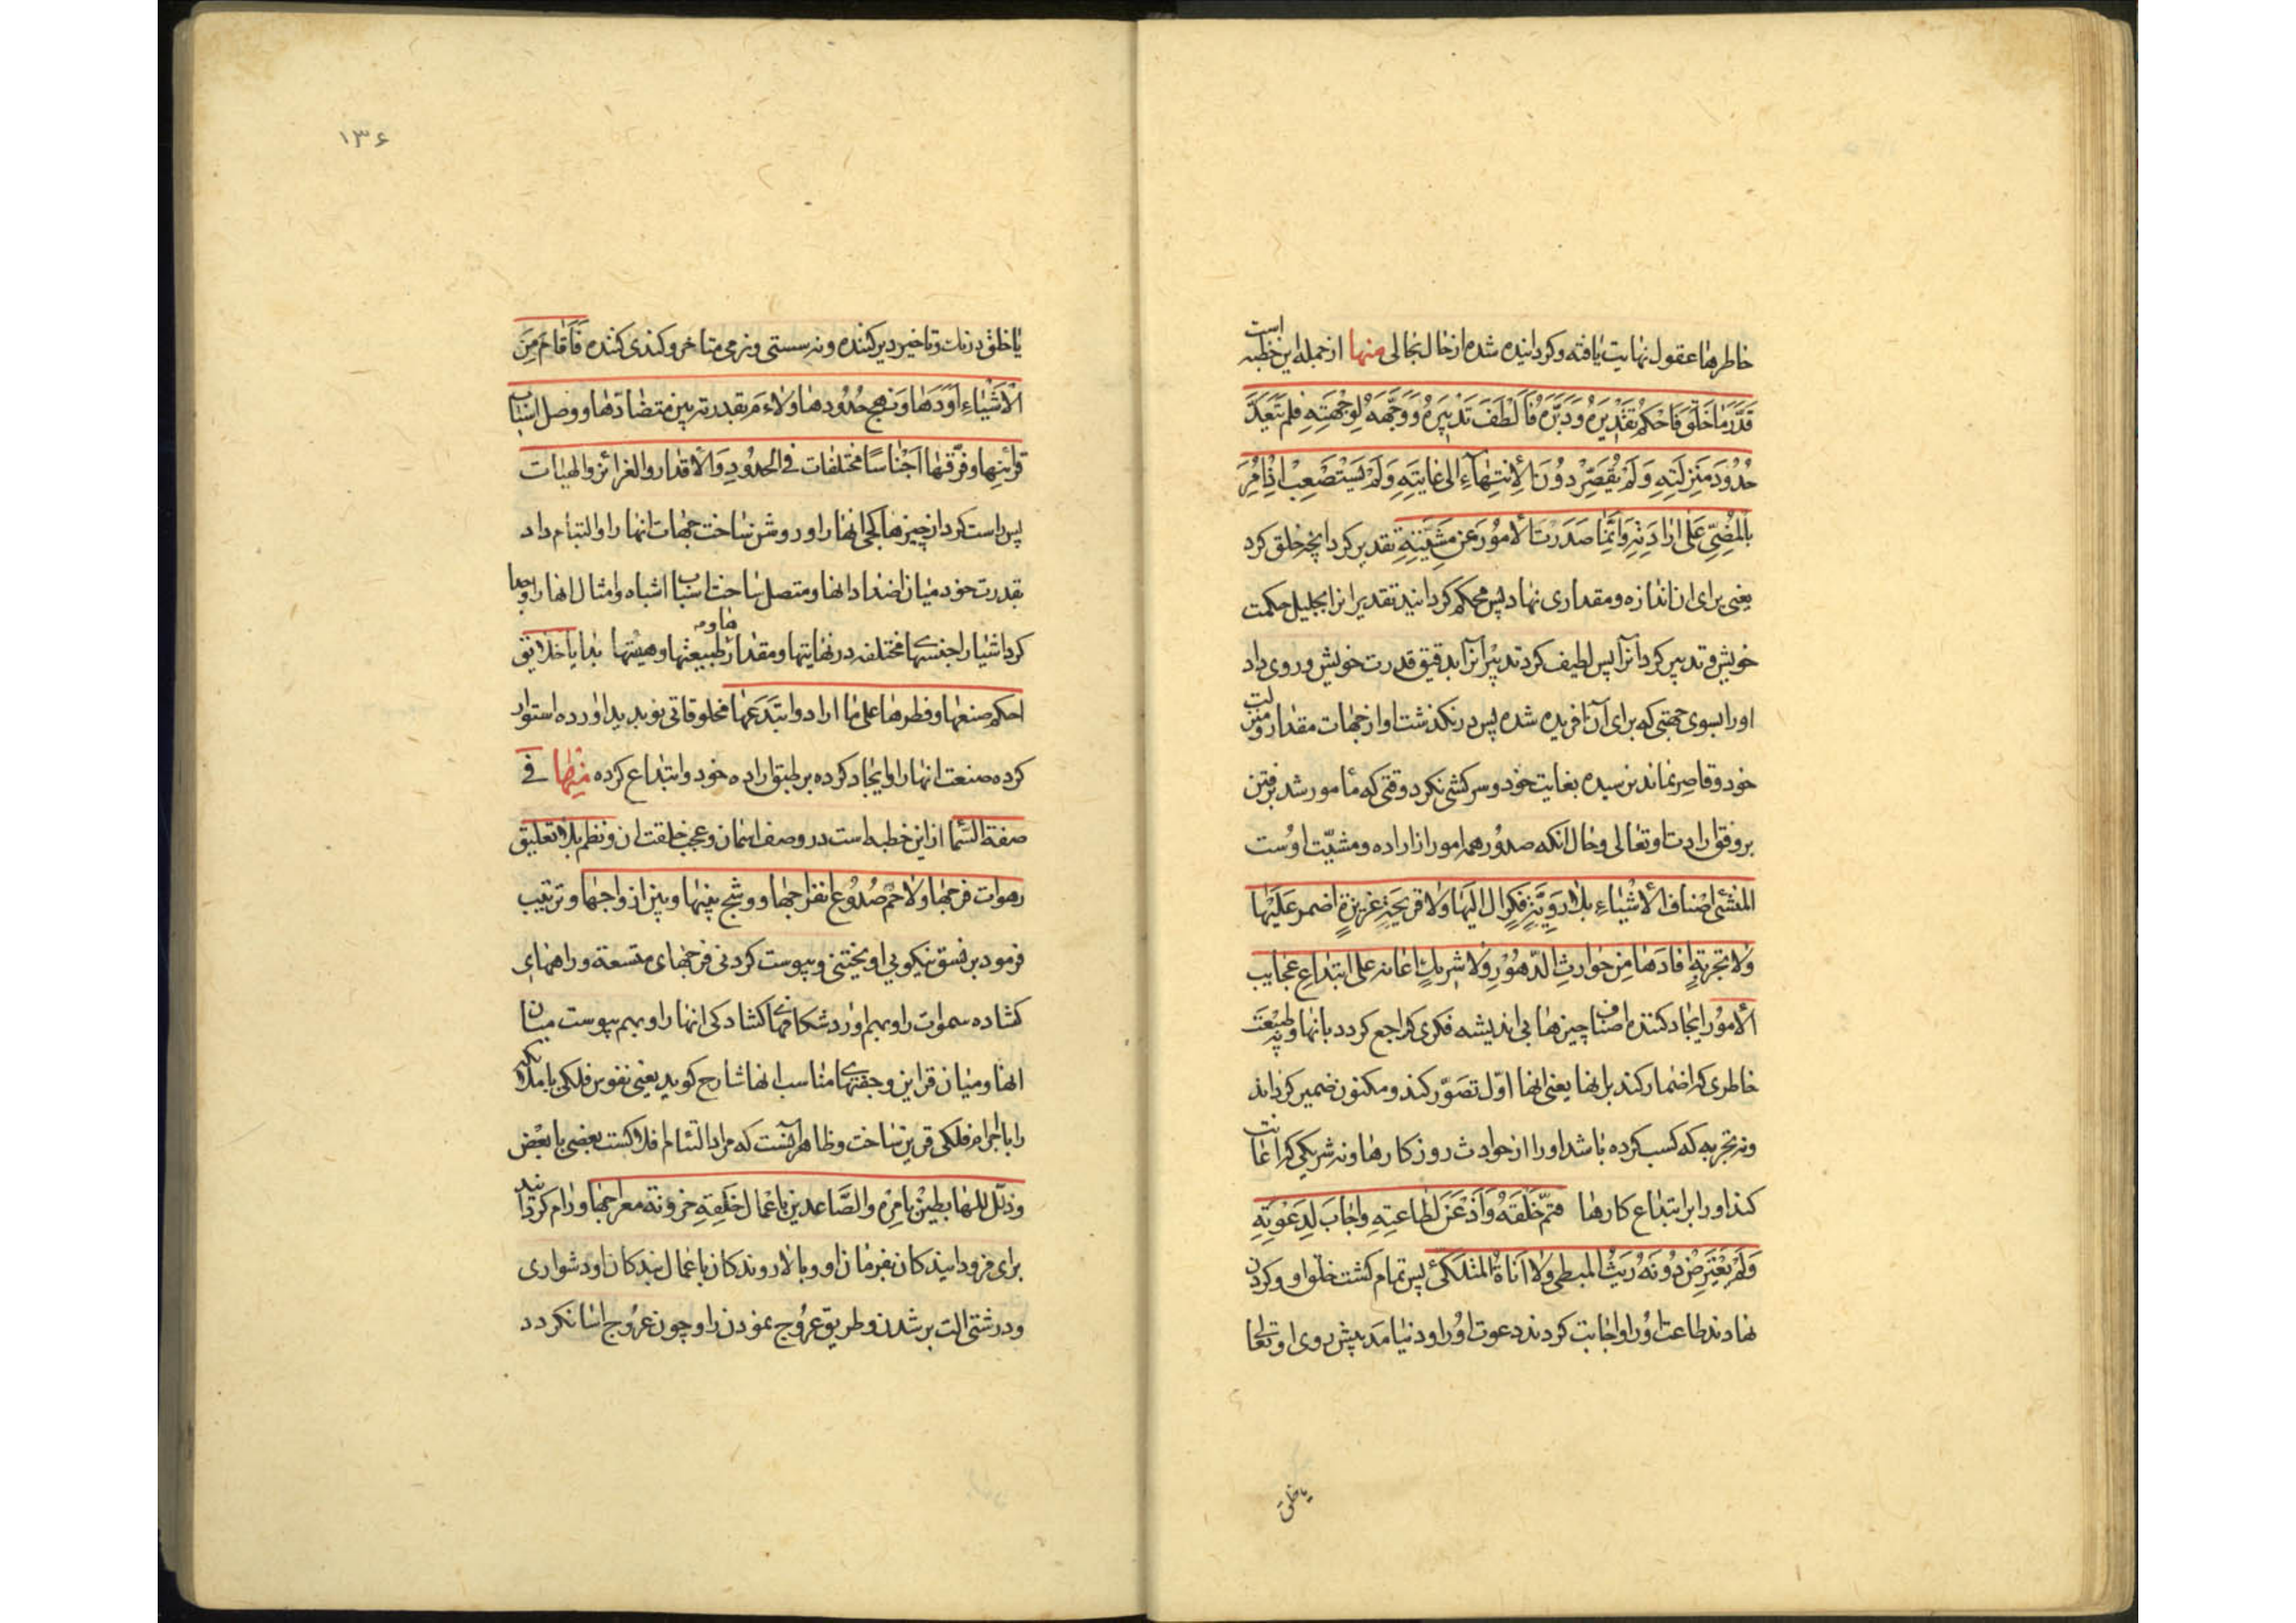 خاطرها عقول نهایت یافته و کردانیده شده از حال بحالی منها از جمله این خطبه است
قَدَّرَ مَا خَلَقَ فَاَحْكَمَ تَقْدِيرَهُ وَدَبَّرَهُ فَاَلْطَفَ تَدْبِيرَهُ وَوَجَّهَهُ لِوِجْهَتِهِ فلم يَتَعَدَّ
حُدُودَ مَنْزِلَتِهِ وَلَمْ يُقَصِّرْ دُونَ الْاِنْتِهَاءِ اِلى غايَتِهِ وَلَمْ يَسْتَصْعِبْ اِذْ اُمِرَ
بِالْمُضِيِّ عَلى اِرادَتِهِ وَاِنَّمَا صَدَرَتِ الْاُمُورُ عَنْ مَشِيَّتِهِ تقدیر کرد انچه خلق کرد
یعنی برای ان اندازه و مقداری نهاد پس محکم کردانید تقدیر انرا بجلیل حکمت
خویش و تدبیر کرد آنرا پس لطیف کرد تدبیر آنرا بدقیق قدرت خویش و روی داد
اورا بسوی جهتی که برای آن افریده شده پس در نکذشت او از جهات مقدار و منزلت
خود و قاصر نماند برسیده بغایت خود و سرکشی نکرد وقتی که مامور شد برفتن
بر وفق ارادت او تعالی و حال انکه صدور همه امور از اراده و مشیّت اوست
المنشئ اصناف الْاَشْياءِ بِلا رَوِيَّةِ فِكْرٍ ال اليها ولا قريحَةِ غريزةٍ اضمر عَلَيْها
ولا تجربةٍ افادَها مِن حوادثِ الدّهُورِ ولا شريكٍ اعانه على ابتداعِ عجايب
الْاُمُور ایجاد کننده اصناف چیزها بی اندیشه فکری که راجع کردد بانها و بی طبیعت
خاطری که اضمار کند بر انها یعنی انها اوّل تصوّر کند و مکنون ضمیر کرداند
و نه تجربه که کسب کرده باشد اورا از حوادث روزکارها و نه شریکی که اعانت
کند اورا بر ابتداع کارها فتمّ خَلْقَهُ وَاَذْعَنَ لِطاعتِهِ واجابَ لِدَعْوَتِهِ
وَلَمْ يَعْتَرِضْ دُونَهُ رَيْثُ المبطى ولا اَناةُ المتلكّئ پس تمام کشت خلق او و کردن
نهادند طاعت اورا و اجابت کردند دعوت اورا و در نیامد پیش روی او تعالی
یا خلق
۱۳۶
یا خلق درنک و تاخیر دیر کننده و نه سستی و نرمی متاخر و کندی کننده فَاَقامَ مِنَ
الْاَشْياءِ اَوَدَها وَنهج حُدُودها ولاءَم بقدرته بين متضادّها ووصل اسباب
قرائنِها وفرّقها اَجْناسًا مختلفات فی الحدُودِ وَالْاقدار والغرائز والهيات
پس راست کرد از چیزها کجی انها را و روشن ساخت جهات انها را و التیام داد
بقدرت خود میان اضداد انها و متصل ساخت اسباب اشباه و امثال انها را و جدا
کرد اشیا را جنسهای مختلفه در نهایتها و مقدارها و طبیعتها و هیئتها بدایا خلایق
احكم صنعها وفطرها على ما اراد وابتدَعَها مخلوقاتی نو پدید اورده استوار
کرده صنعت انها را و ایجاد کرده بر طبق اراده خود و ابتداع کرده منها فی
صفة السّما از این خطبه است در وصف اسمان و عجب خلقت ان ونظم بلا تعليق
رهوات فرجها ولاحم صُدُوع انفراجها ووشّج بينها وبين ازواجها و ترتیب
فرمود بر نسق نیکو بی اویختنی و پیوست کردنی فرجهای متسعة و راههای
کشاده سموات را و بهم اورد شکافهای کشادکی انها را و بهم پیوست میان
انها و میان قراین و جفتهای مناسب انها شارح کوید یعنی نفوس فلکی یا ملائکه
را با اجرام فلکی قرین ساخت و ظاهر آنست که مراد التئام افلاکست بعضی با بعض
وذلّل للهابطين بِاَمرِه والصَّاعدين باعمال خلقِهِ حزونة معراجها و رام کردانید
برای فرود ایندکان بفرمان او و بالا روندکان باعمال بندکان او دشواری
و درشتی الت بر شدن و طریق عروج نمودن را و چون عروج اسان کردد